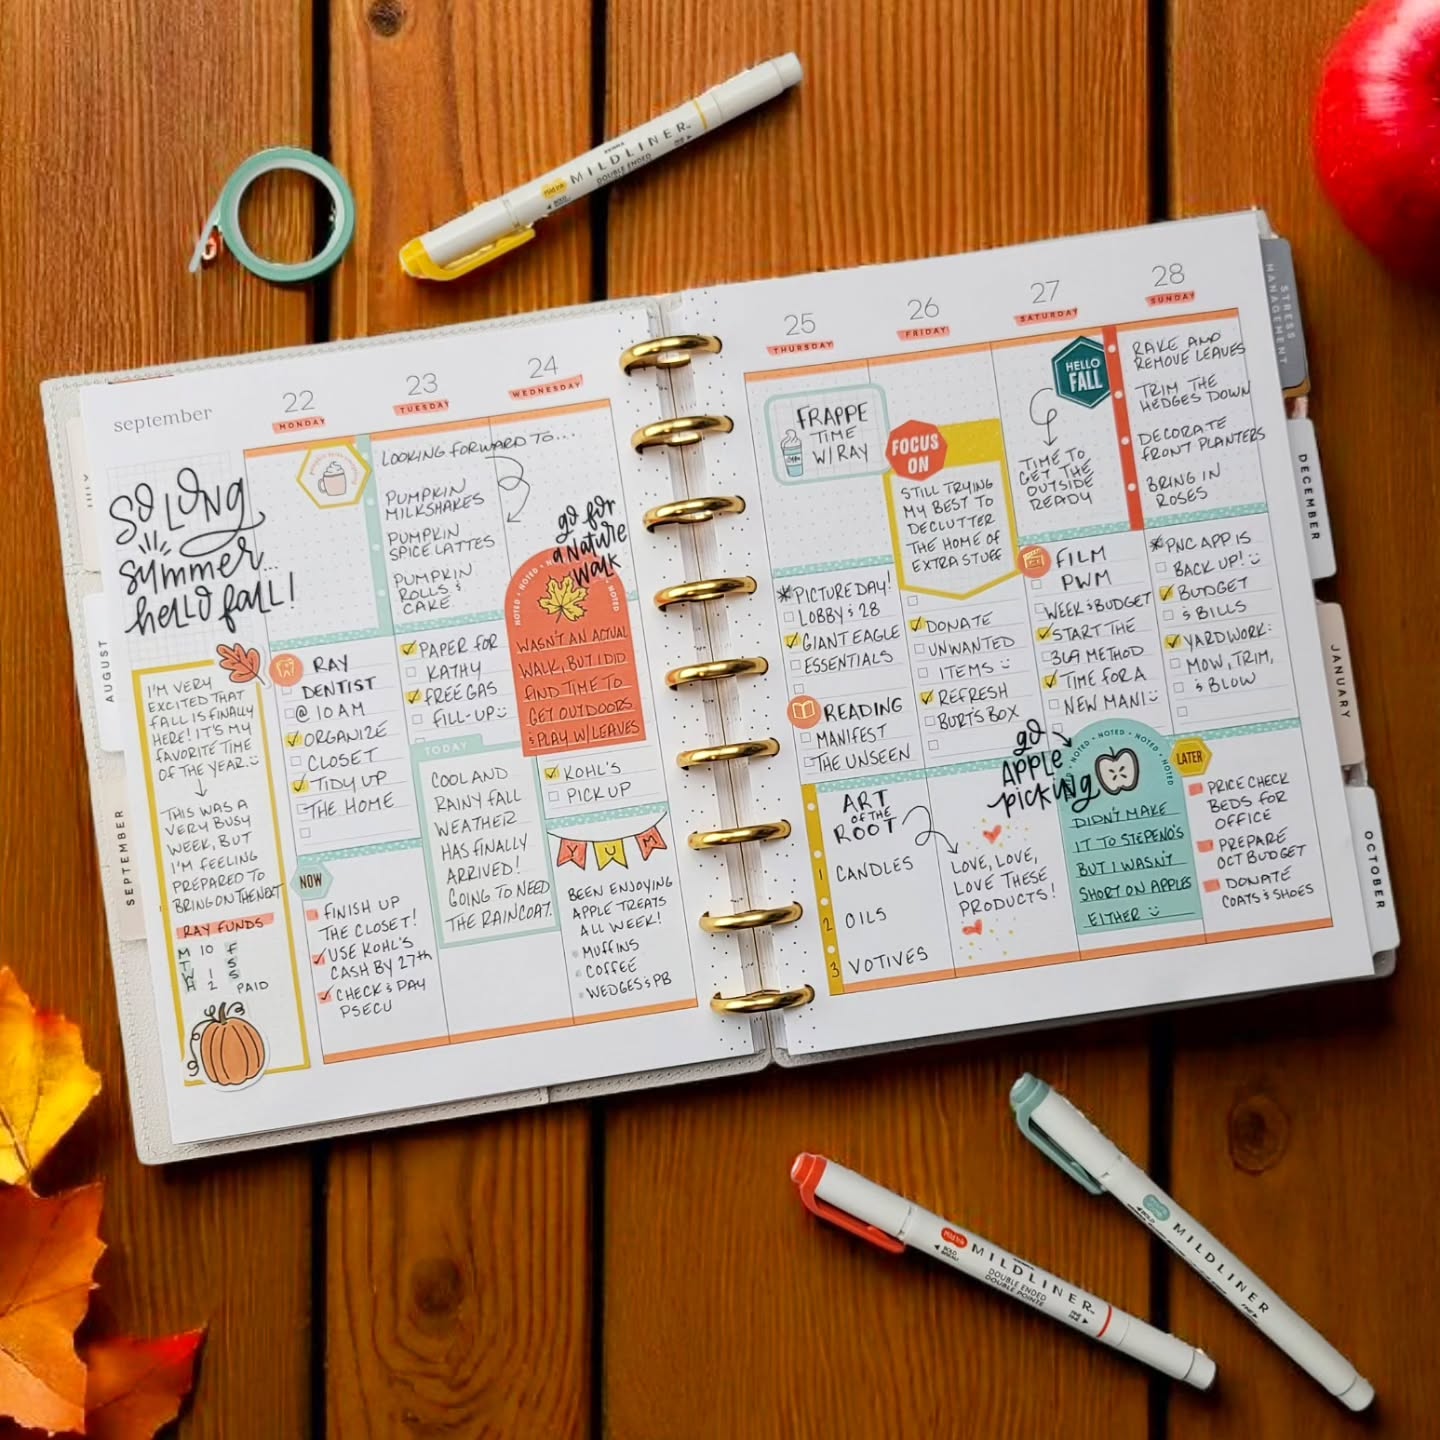 MILDLINER
DOUBLE ENDED
BOLD
september
22
MONDAY
23
TUESDAY
24
WEDNESDAY
25
THURSDAY
26
FRIDAY
27
SATURDAY
28
SUNDAY
SO LONG
summer...
hello fall!
I'M VERY
EXCITED THAT
FALL IS FINALLY
HERE! IT'S MY
FAVORITE TIME
OF THE YEAR.
THIS WAS A
VERY BUSY
WEEK, BUT
I'M FEELING
PREPARED TO
BRING ON THE NEXT
RAY FUNDS
M 10 F
T S
W 1 S
H 2 PAID
RAY
DENTIST
@ 10 AM
ORGANIZE
CLOSET
TIDY UP
THE HOME
NOW
FINISH UP
THE CLOSET!
USE KOHL'S
CASH BY 27th
CHECK & PAY
PSECU
LOOKING FORWARD TO...
PUMPKIN
MILKSHAKES
PUMPKIN
SPICE LATTES
PUMPKIN
ROLLS &
CAKE
PAPER FOR
KATHY
FREE GAS
FILL-UP
TODAY
COOL AND
RAINY FALL
WEATHER
HAS FINALLY
ARRIVED!
GOING TO NEED
THE RAINCOAT.
go for
a nature
walk
NOTED • NOTED • NOTED
WASN'T AN ACTUAL
WALK, BUT I DID
FIND TIME TO
GET OUTDOORS
& PLAY W/ LEAVES
KOHL'S
PICK UP
YUM
BEEN ENJOYING
APPLE TREATS
ALL WEEK!
MUFFINS
COFFEE
WEDGES & PB
FRAPPE
TIME
W/ RAY
*PICTURE DAY!
LOBBY & 28
GIANT EAGLE
ESSENTIALS
READING
MANIFEST
THE UNSEEN
ART
OF THE
ROOT
1 CANDLES
2 OILS
3 VOTIVES
FOCUS
ON
STILL TRYING
MY BEST TO
DECLUTTER
THE HOME OF
EXTRA STUFF
DONATE
UNWANTED
ITEMS
REFRESH
BURT'S BOX
LOVE, LOVE,
LOVE THESE
PRODUCTS!
HELLO
FALL
TIME TO
GET THE
OUTSIDE
READY
FILM
PWM
WEEK & BUDGET
START THE
369 METHOD
TIME FOR A
NEW MANI
go
apple
picking
NOTED • NOTED • NOTED
DIDN'T MAKE
IT TO STEPENO'S
BUT I WASN'T
SHORT ON APPLES
EITHER
RAKE AND
REMOVE LEAVES
TRIM THE
HEDGES DOWN
DECORATE
FRONT PLANTERS
BRING IN
ROSES
*PNC APP IS
BACK UP!
BUDGET
& BILLS
YARDWORK:
MOW, TRIM,
& BLOW
LATER
PRICE CHECK
BEDS FOR
OFFICE
PREPARE
OCT BUDGET
DONATE
COATS & SHOES
JULY
AUGUST
SEPTEMBER
STRESS
MANAGEMENT
DECEMBER
JANUARY
OCTOBER
MILDLINER
DOUBLE ENDED
DOUBLE POINTE
BOLD
MILDLINER
BOLD
FINE